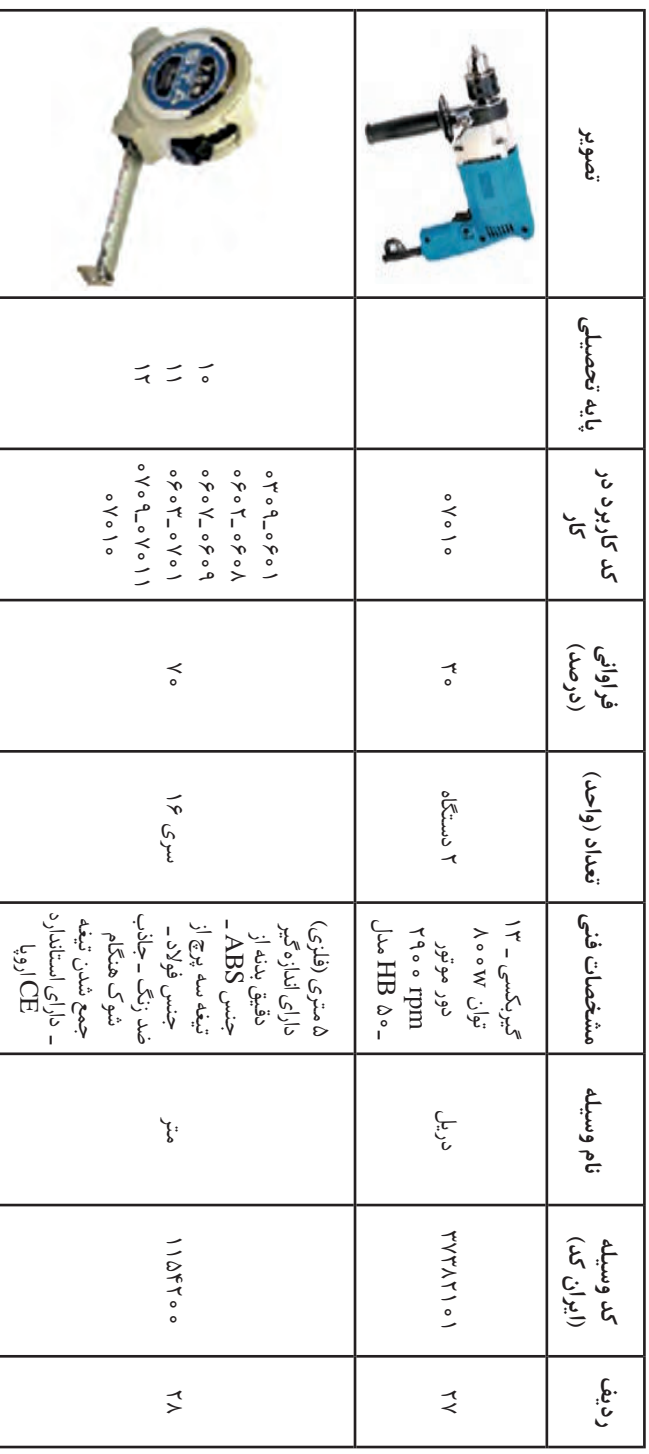 ردیف
کد وسیله
(ایران کد)
نام وسیله
مشخصات فنی
تعداد (واحد)
فراوانی
(درصد)
کد کاربرد در
کار
پایه تحصیلی
تصویر
۲۷
۳۷۳۸۲۱۰۱
دریل
گیربکسی - ۱۳
توان ۸۰۰w
دور موتور
۲۹۰۰ rpm
ـ HB ۵۰ مدل
۲ دستگاه
۳۰
۰۷۰۱۰
۲۸
۱۱۵۴۲۰۰
متر
۵ متری (فلزی)
دارای اندازه‌گیر
دقیق بدنه از
جنس ABS ـ
تیغه سه پرچ از
جنس فولاد ـ
ضد زنگ ـ جاذب
شوک هنگام
جمع شدن تیغه
ـ دارای استاندارد
CE اروپا
۱۶ سری
۷۰
۰۳۰۹_۰۶۰۱
۰۶۰۲_۰۶۰۸
۰۶۰۷_۰۶۰۹
۰۶۰۳_۰۷۰۱
۰۷۰۹_۰۷۰۱۱
۰۷۰۱۰
۱۰
۱۱
۱۲